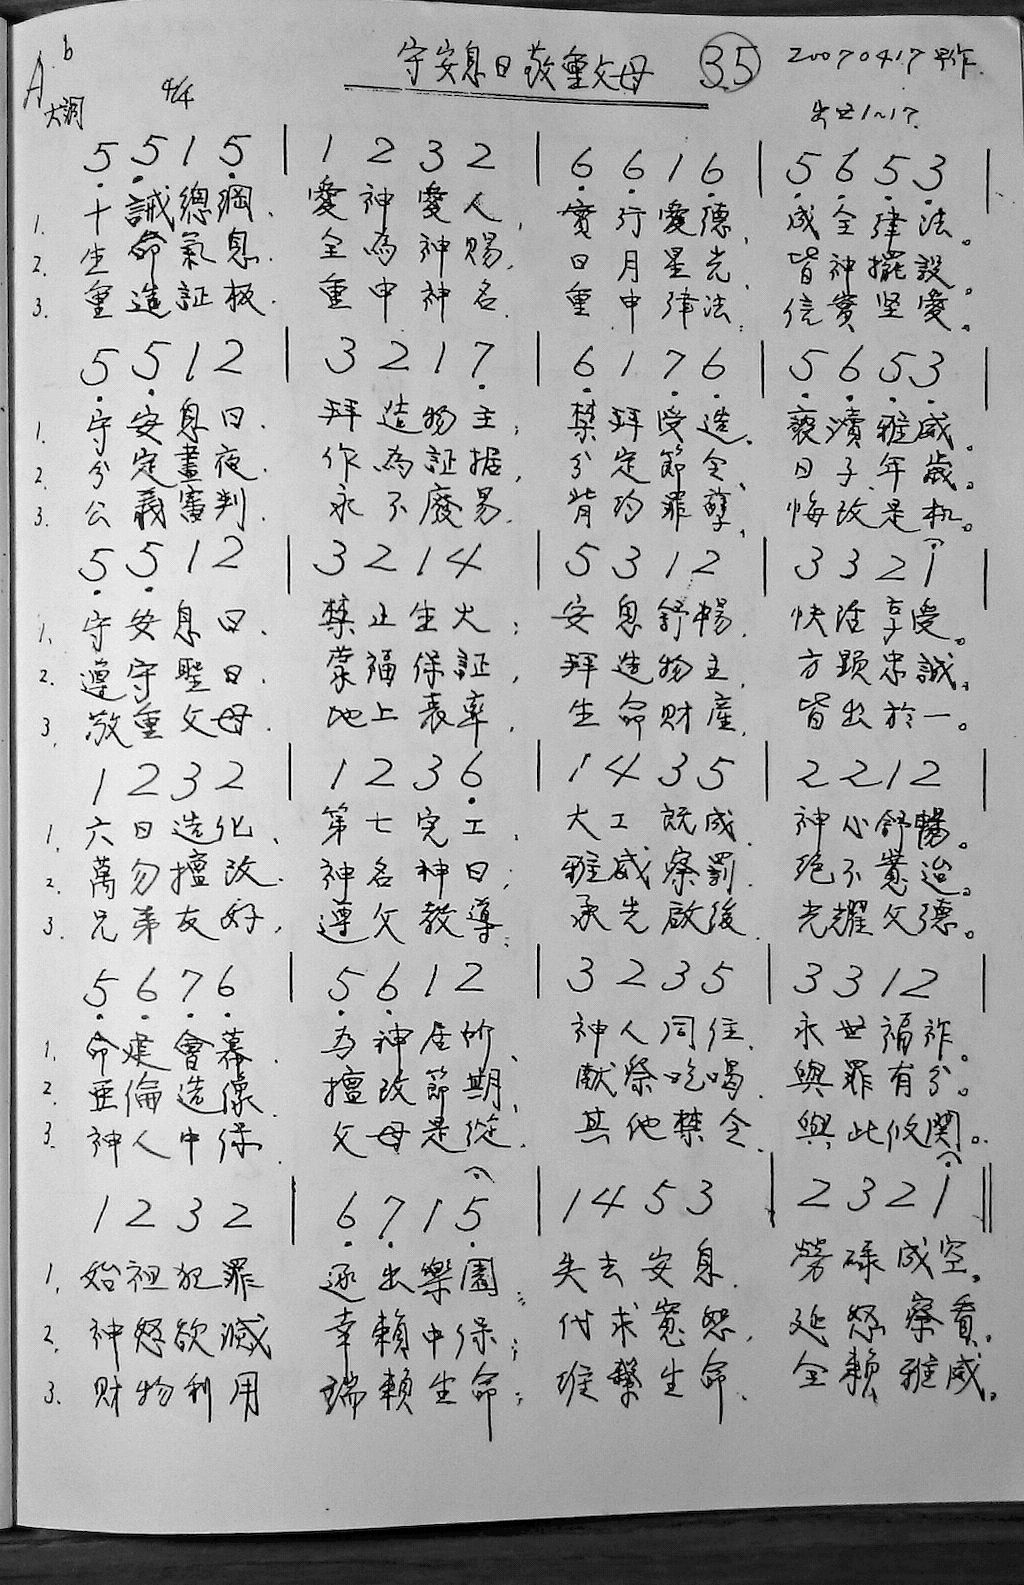 A b 大調 4/4 守安息日敬重父母 35 20070417早作.
出廿1~17.
5 5 1 5 | 1 2 3 2 | 6 6 1 6 | 5 6 5 3 |
1. 十誡總綱. 愛神愛人, 實行愛德, 成全律法。
2. 生命氣息. 全為神賜, 日月星光 皆神擺設。
3. 重造証板. 重申神名 重申律法, 信實坚愛。
5 5 1 2 | 3 2 1 7 | 6 1 7 6 | 5 6 5 3 |
1. 守安息日. 拜造物主; 禁拜受造. 褻瀆雅威。
2. 分定晝夜. 作為証据, 分定節令、 日子年歲。
3. 公義審判. 永不廢易. 背约罪孽、 悔改是机。
5 5 1 2 | 3 2 1 4 | 5 3 1 2 | 3 3 2 1 |
1. 守安息日. 禁止生火; 安息舒暢. 快活享受。
2. 遵守聖日. 蒙福保証, 拜造物主, 方顕忠誠。
3. 敬重父母. 地上表率, 生命財產, 皆出於一。
1 2 3 2 | 1 2 3 6 | 1 4 3 5 | 2 2 1 2 |
1. 六日造化、 第七完工, 大工既成. 神心舒暢。
2. 萬勿擅改. 神名神日; 雅威察罰. 绝不寬迨。
3. 兄弟友好, 遵父教導; 承先啟後. 光耀父德。
5 6 7 6 | 5 6 1 2 | 3 2 3 5 | 3 3 1 2 |
1. 命建會幕. 为神居所、 神人同住. 永世福祚。
2. 亜倫造像. 擅改節期, 献祭吃喝. 與罪有分。
3. 神人中保. 父母是從. 其他禁令. 與此攸関。
1 2 3 2 | 6 7 1 5 | 1 4 5 3 | 2 3 2 1 ||
1. 始祖犯罪 逐出樂園; 失去安息. 勞碌成空。
2. 神怒欲滅 幸賴中保; 代求寬恕, 延怒察看。
3. 財物利用 瑞賴生命; 維繫生命. 全賴雅威。